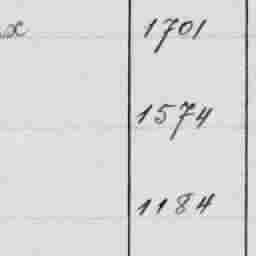 x 1701
1574
1184